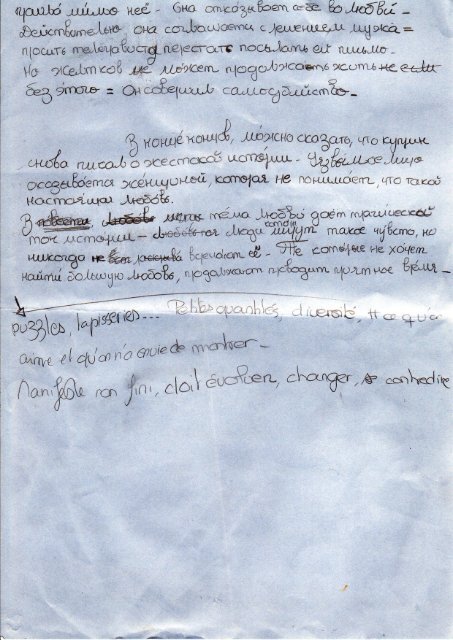 прямо мимо неё - Она отказывает себе во любви -
Действительно она соглашается с решением мужа =
просить телеграфиста перестать посылать ей письмо -
Но желтков не может продолжать жить не если
без этого = Он совершил самоубийство -
В конце концов, можно сказать, что куприн
снова писал о жестокой истории - Уязвимое лицо
оказывается женщиной, которая не понимает, что такой
настоящая любовь.
В повести любовь тема любви даёт трагической
тон истории - люди ищут такое чувство, но
никогда не встречают её - Те которые не хочет
найти большую любовь, продолжают проводит приятное время -
Petites quantités, diversité, tt ce qu'on
puzzles, tapisseries...
aime et qu'on n'a envie de montrer -
Manifeste non fini, doit évoluer, changer, se contredire